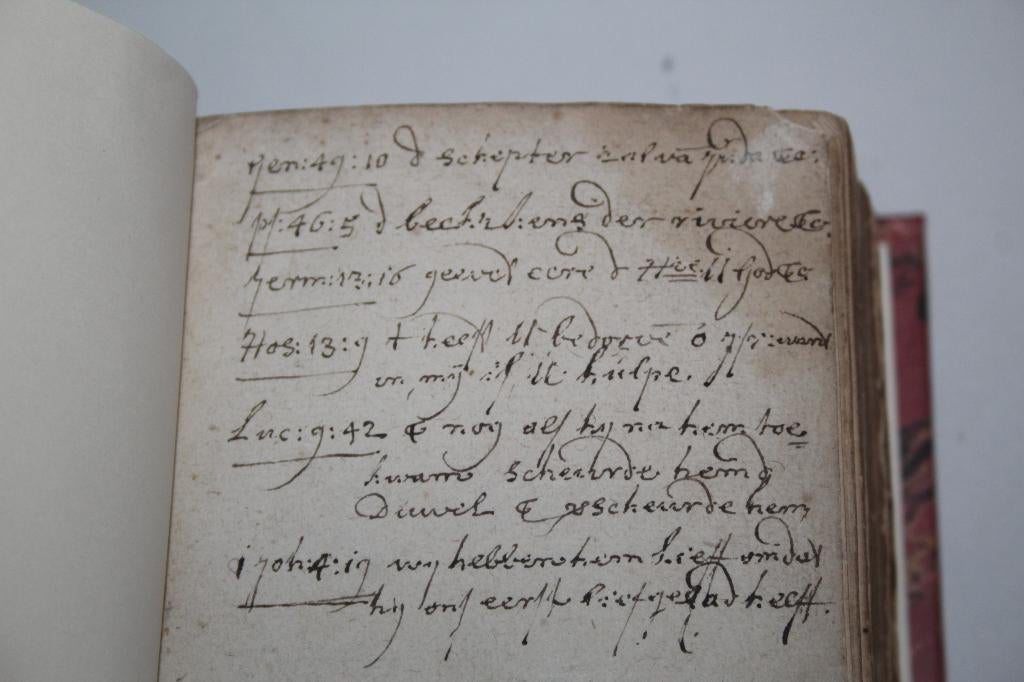 Jen: 49: 10 d schepter zal vā Juda &c:
ps: 46: 5 d beekskens der riviere &c.
Jerm: 13: 16 geevet eere d Hee: U Godts
Hos: 13: 9 t heeft U bedorvē ô Isr:
in mij is U hulpe.
Luc: 9: 42 & nog als hij na hem toe
kwam scheurde hem d
Duwel & vscheurde hem
1 Joh: 4: 19 wij hebben hem lieff omdat
hij ons eerst liefgehad heeft.